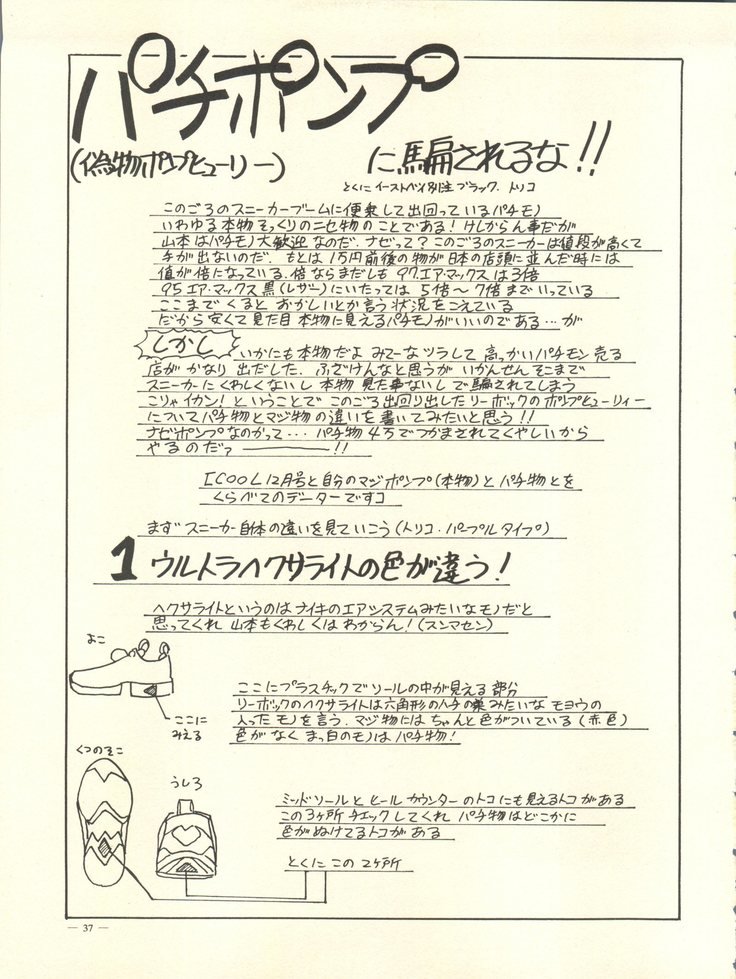 パチポンプ
(偽物ポンプヒューリー)
に騙されるな!!
とくに イーストベイ別注 ブラック. トリコ
このごろのスニーカーブームに便乗して出回っているパチモノ
いわゆる本物そっくりのニセ物のことである!けしからん事だが
山本はパチモノ大歓迎なのだ.ナゼって?このごろのスニーカーは値段が高くて
手が出ないのだ. もとは1万円前後の物が日本の店頭に並んだ時には
値が倍になっている.倍ならまだしも 97.エアマックスは3倍
95エア・マックス黒(レザー)にいたっては 5倍〜7倍までいっている
ここまでくるとおかしいとか言う状況をこえている
だから安くて見た目本物に見えるパチモノがいいのである…が
しかし
いかにも本物だよ みてーなツラして 高っかいパチモン売る
店が かなり出だした. ふざけんなと思うが いかんせん そこまで
スニーカーにくわしくないし 本物見た事ないしで騙されてしまう
こりゃイカン!ということで このごろ出回り出したリーボックのポンプヒューリィー
についてパチ物とマジ物の違いを書いてみたいと思う!!
ナゼポンプなのかって… パチ物4万でつかまされてくやしいから
やるのだァ――!!
[COOL12月号と自分のマジポンプ(本物)とパチ物とを
くらべてのデーターですコ
まず スニーカー自体の違いを見ていこう(トリコ.パープルタイプ)
1 ウルトラヘクサライトの色が違う!
ヘクサライトというのはナイキのエアシステムみたいなモノだと
思ってくれ 山本もくわしくは わからん!(スンマセン)
よこ
ここに
みえる
ここにプラスチックでソールの中が見える部分
リーボックのヘクサライトは六角形のハチの巣みたいな モヨウの
入ったモノを言う.マジ物にはちゃんと色がついている(赤色)
色がなく まっ白のモノは パチ物!
くつのそこ
うしろ
ミッドソールとヒールカウンターのトコにも見えるトコがある
この3ヶ所チェックしてくれ パチ物はどこかに
色がぬけてるトコがある
とくに この 2ヶ所
— 37 —